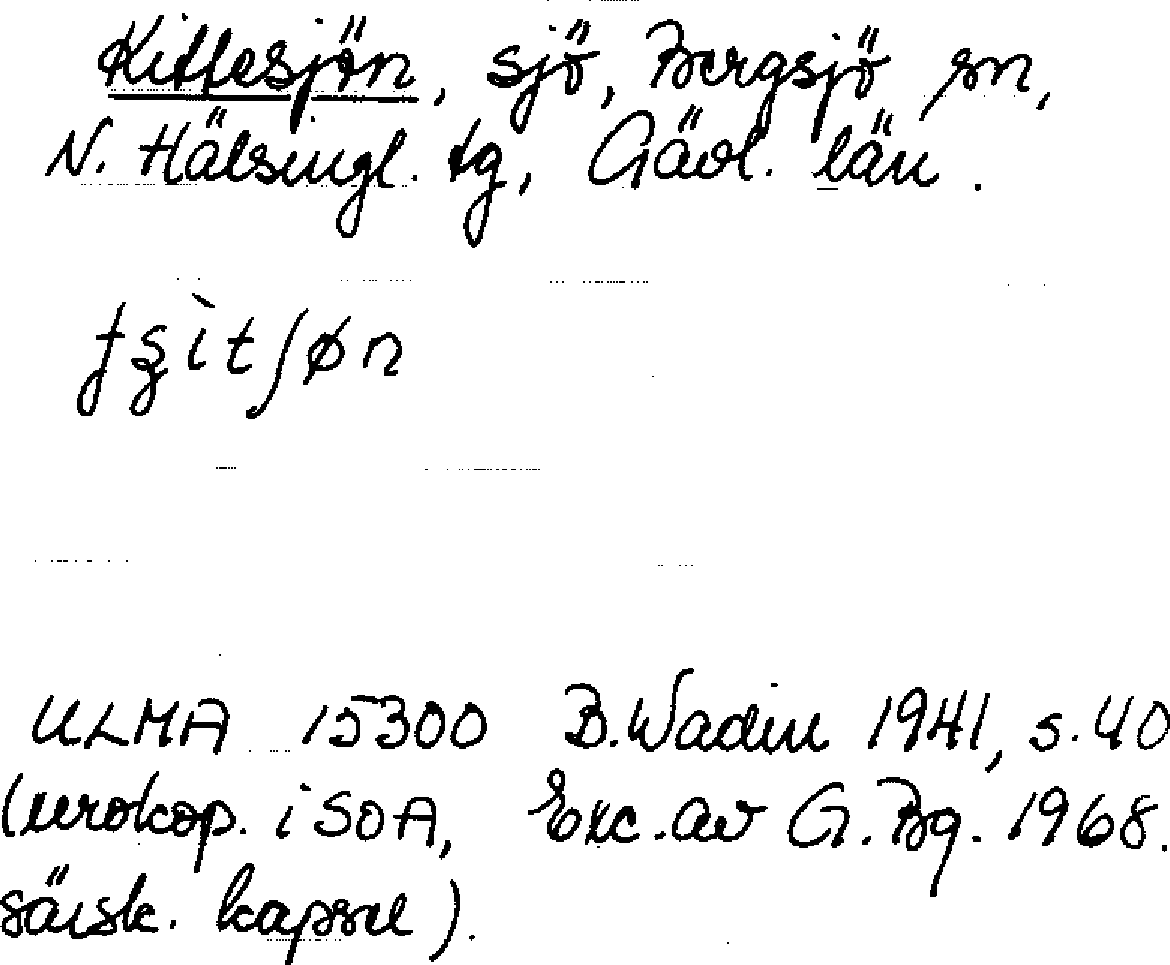 Kittesjön, sjö, Bergsjö sn,
N. Hälsingl. tg, Gävl. län.
ɟʓìtʃøn
ULMA 15300 B. Wadin 1941, s. 40
(xerokop. i SOA, Exc. av G. Bg. 1968.
särsk. kapsel).